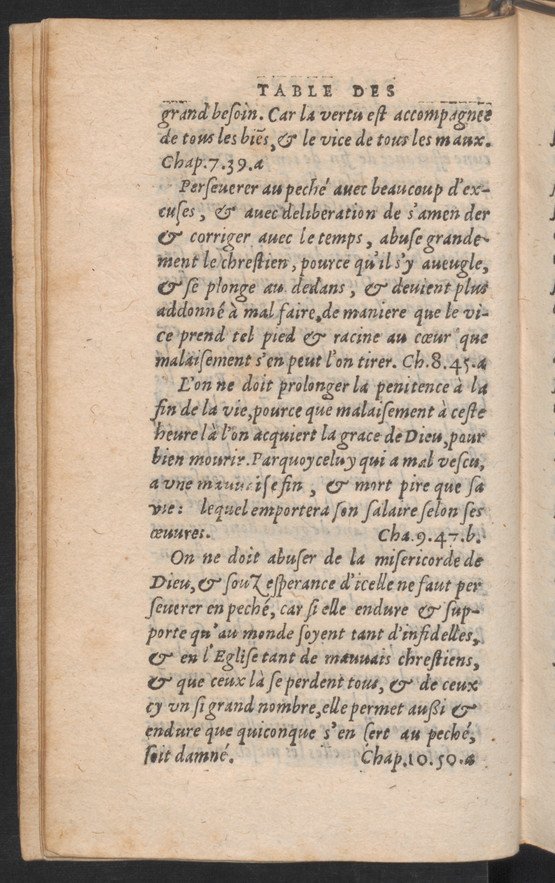 TABLE DES
grand beſoin. Car la vertu eſt accompagnee
de tous les biẽs, & le vice de tous les maux.
Chap.7.39.a
Perſeuerer au peché auec beaucoup d'ex-
cuſes, & auec deliberation de s'amen der
& corriger auec le temps, abuſe grande-
ment le chreſtien, pource qu'il s'y aueugle,
& ſe plonge au dedans, & deuient plus
addonné à mal faire, de maniere que le vi-
ce prend tel pied & racine au cœur que
malaiſement s'en peut l'on tirer. Ch.8.45.a
L'on ne doit prolonger la penitence à la
fin de la vie, pource que malaiſement à ceſte
heure là l'on acquiert la grace de Dieu, pour
bien mourir. Parquoy celuy qui a mal veſcu,
a vne mauuaiſe fin, & mort pire que ſa
vie: lequel emportera ſon ſalaire ſelon ſes
œuures. Cha.9.47.b.
On ne doit abuſer de la miſericorde de
Dieu, & ſouz eſperance d'icelle ne faut per
ſeuerer en peché, car ſi elle endure & ſup-
porte qu'au monde ſoyent tant d'infidelles,
& en l'Egliſe tant de mauuais chreſtiens,
& que ceux là ſe perdent tous, & de ceux
cy vn ſi grand nombre, elle permet außi &
endure que quiconque s'en ſert au peché,
ſoit damné. Chap.10.50.a